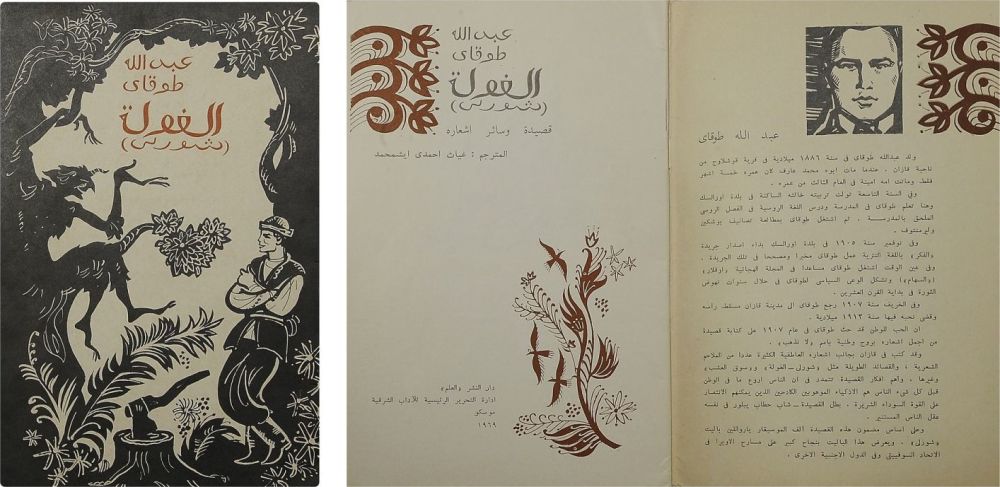 عبدالله
طوقاى
الغولة
(شورلى)
عبدالله
طوقاى
الغولة
(شورلى)
قصيدة وسائر اشعاره
المترجم : غياث احمدى ايشمحمد
دار النشر «العلم»
ادارة التحرير الرئيسية للآداب الشرقية
موسكو
١٩٦٩
عبد الله طوقاى
ولد عبدالله طوقاى فى سنة ١٨٨٦ ميلادية فى قرية قوشلاوج من
ناحية قازان . عندما مات ابوه محمد عارف كان عمره خمسة اشهر
فقط. وماتت امه امينة فى العام الثالث من عمره .
وفى السنة التاسعة تولت تربيته خالته الساكنة فى بلدة اورالسك
وهنا تعلم طوقاى فى المدرسة ودرس اللغة الروسية فى الفصل الروسى
الملحق بالمدرسة . ثم اشتغل طوقاى بمطالعة تصانيف بوشكين
وليرمنتوف .
وفى نوفمبر سنة ١٩٠٥ فى بلدة اورالسك بداء اصدار جريدة
«الفكر» باللغة التترية عمل طوقاى مخبرا ومصححا فى تلك الجريدة .
وفى عين الوقت اشتغل طوقاى مساعدا فى المجلة الهجائية «اوقلار»
(«السهام») وتشكل الوعى السياسى لطوقاى فى خلال سنوات نهوض
الثورة فى بداية القرن العشرين .
وفى الخريف سنة ١٩٠٧ رجع طوقاى الى مدينة قازان مسقط رأسه
وقضى نحبه فيها سنة ١٩١٣ ميلادية .
ان الحب للوطن قد حث طوقاى فى عام ١٩٠٧ على كتابة قصيدة
من اجمل اشعاره بروح وطنية باسم «لا نذهب» .
وقد كتب فى قازان بجانب اشعاره العاطفية الكثيرة عددا من الملاحم
الشعرية ، والقصائد الطويلة مثل «شورلى ــ الغولة» و«سوق العشب»
وغيرها . وأهم افكار القصيدة تتمدد فى ان الناس اروع ما فى الوطن
قبل كل شىء الناس هم الاذكياء الموهوبين الكادحين الذين يمكنهم الانتصار
على القوة السوداء الشريرة . بطل القصيدة ــ شاب حطاب يبلور فى نفسه
عقل الناس المستنير .
وعلى اساس مضمون هذه القصيدة الف الموسيقار ياروللين باليت
«شورلى» . ويعرض هذا الباليت بنجاح كبير على مسارح الاوبرا فى
الاتحاد السوفييتى وفى الدول الاجنبية الاخرى .